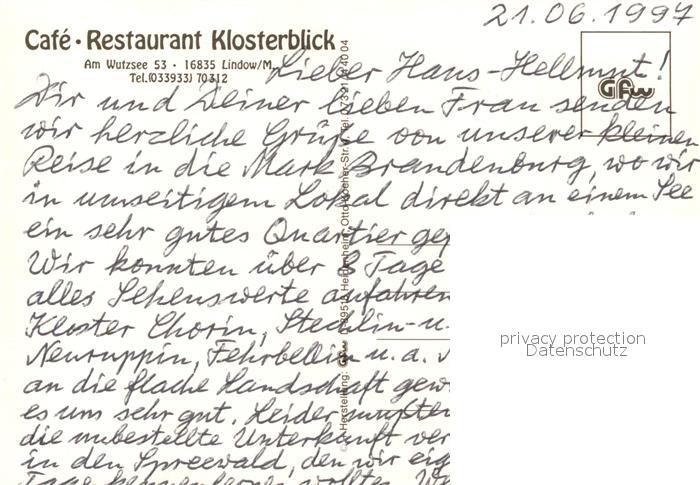 21.06.1997
Café · Restaurant Klosterblick
Am Wutzsee 53 · 16835 Lindow/M.
Tel.(033933) 70312
Gfw
Lieber Hans-Hellmut!
Dir und Deiner lieben Frau senden
wir herzliche Grüße von unserer kleinen
Reise in die Mark Brandenburg, wo wir
in umseitigem Lokal direkt an einem See
ein sehr gutes Quartier
Wir konnten über 8 Tage
alles Sehenswerte anfahren
Kloster Chorin, Stechlin- u.
Neuruppin, Fehrbellin u. a.
an die flache Landschaft
es um sehr gut. Leider mußten
die unbestellte Unterkunft
in den Spreewald, den wir
Herstellung: Gfw
privacy protection
Datenschutz